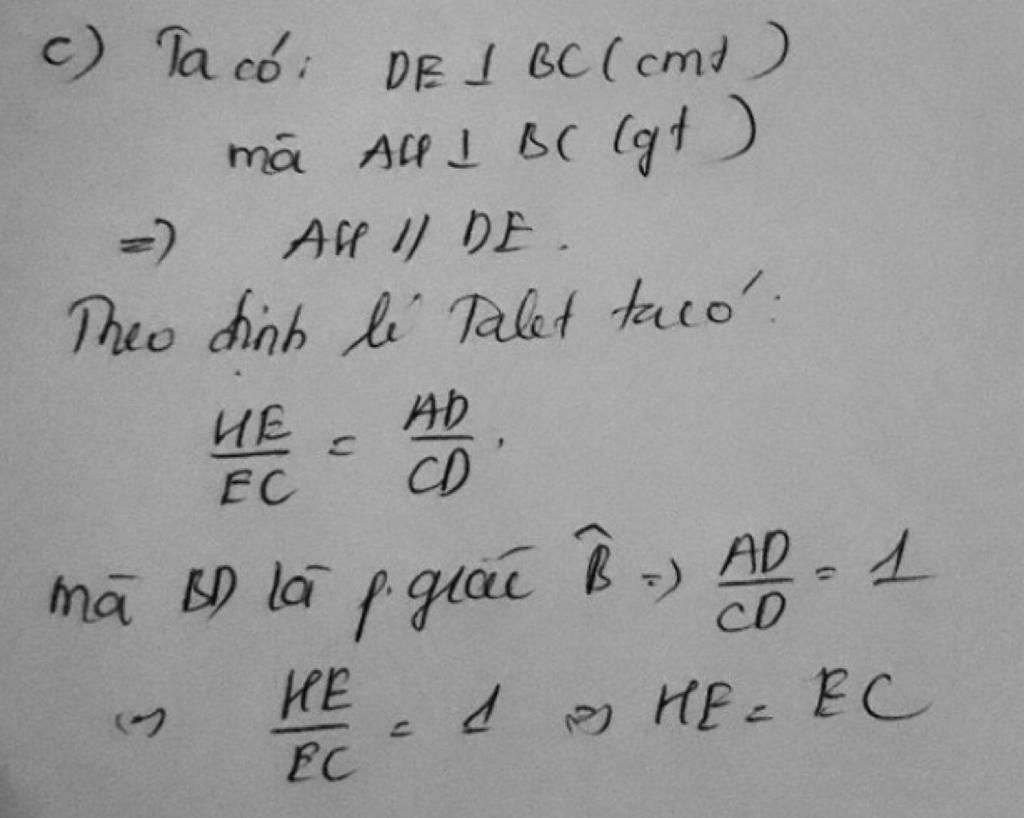 c) Ta có: DE ⊥ BC (cmt)
mà AH ⊥ BC (gt)
=> AH // DE.
Theo định lí Talet ta có:
HE/EC = AD/CD.
mà BD là p.giác B̂ => AD/CD = 1
<=> HE/EC = 1 <=> HE = EC